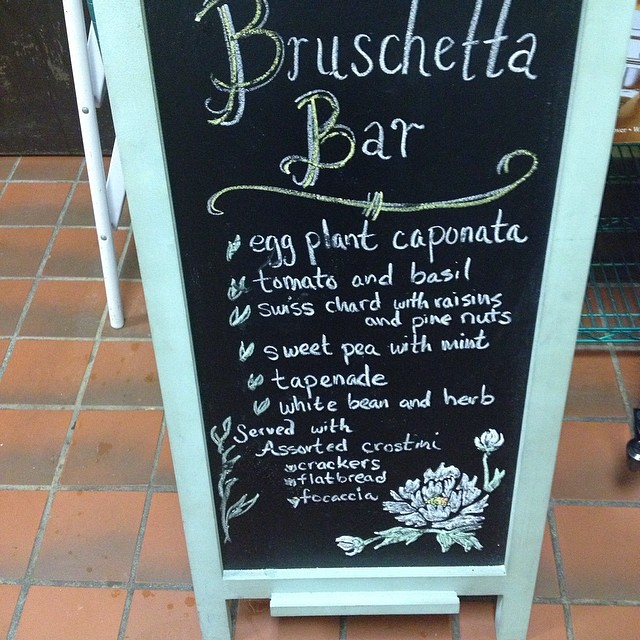 Bruschetta
Bar
egg plant caponata
tomato and basil
swiss chard with raisins
and pine nuts
sweet pea with mint
tapenade
white bean and herb
Served with
Assorted crostini
crackers
flatbread
focaccia